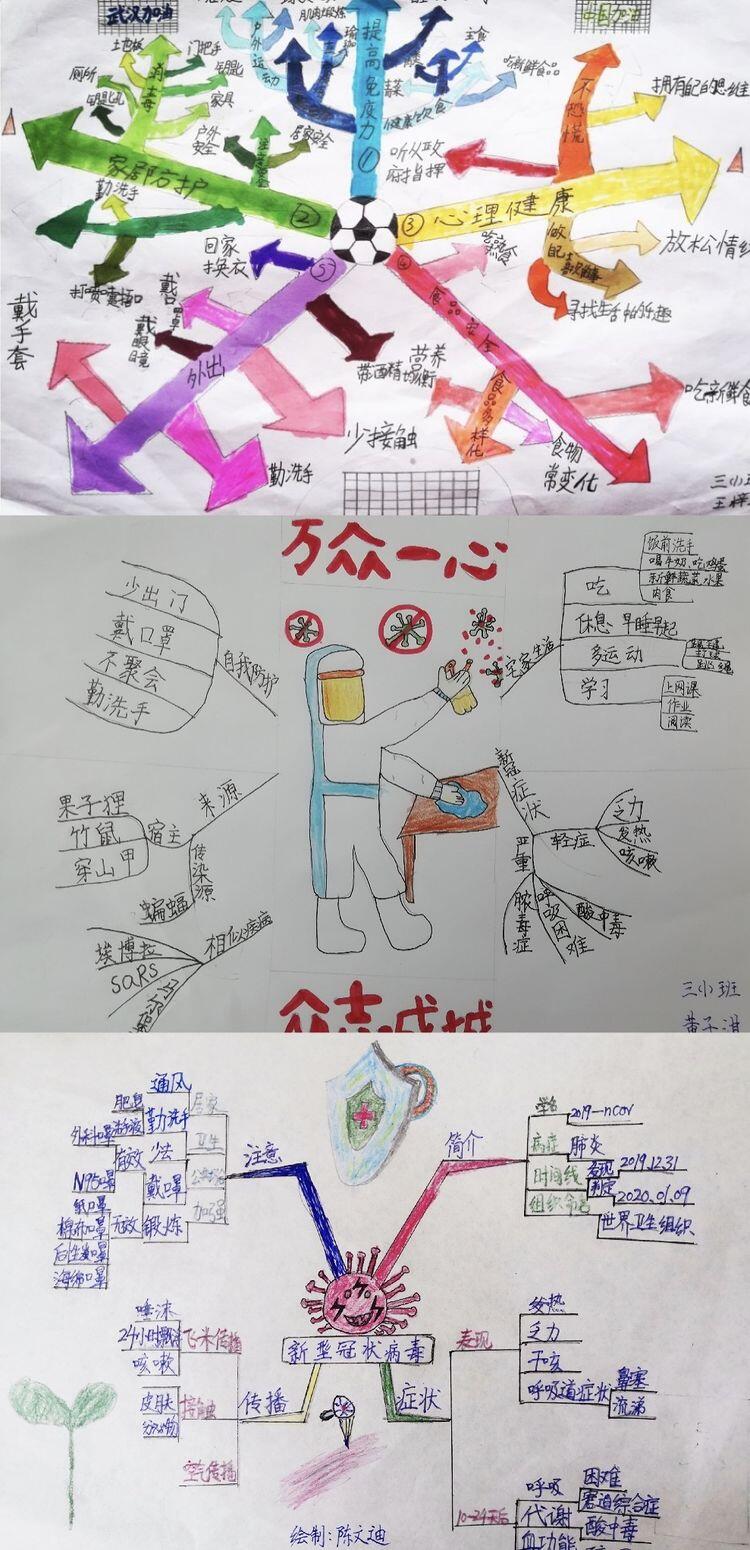 武汉加油
中国加油
肌肉锻炼
户外运动
瑜珈
提高免疫力
①
主食
蔬
健康饮食
吃新鲜食品
土地板
门把手
厕所
消毒
钥匙
钥匙孔
家具
户外安全
居家安全
家居防护
②
勤洗手
打喷嚏捂口
听从政府指挥
不恐慌
拥有自己的思维
③
心理健康
放松情绪
寻找生活中的乐趣
回家换衣
戴口罩
戴眼镜
戴手套
外出
5
带酒精
少接触
勤洗手
④
食品安全
吃熟食
营养均衡
食品多样化
食物常变化
吃新鲜食
三小班
万众一心
少出门
戴口罩
不聚会
勤洗手
自我防护
宅家生活
吃
饭前洗手
喝牛奶、吃鸡蛋
新鲜蔬菜、水果
肉食
休息:早睡早起
多运动
学习
上网课
作业
阅读
来源
宿主
果子狸
竹鼠
穿山甲
传染源
蝙蝠
相似疾病
埃博拉
SARS
新冠症状
轻症
乏力
发热
咳嗽
严重
脓毒症
呼吸困难
酸中毒
众志成城
三小班
注意
居家
通风
卫生
勤洗手
肥皂
公共场所
少去
戴口罩
有效
外科口罩
N95口罩
无效
纸口罩
棉布口罩
海绵口罩
加强
锻炼
简介
学名
2019-nCoV
病症
肺炎
时间线
发现
2019.12.31
判定
2020.01.09
组织命名
世界卫生组织
新型冠状病毒
传播
飞沫传播
唾沫
咳嗽
接触
皮肤
分泌物
空气传播
症状
表现
发热
乏力
干咳
呼吸道症状
鼻塞
流涕
10-24天后
呼吸
困难
窘迫综合症
代谢
酸中毒
血功能
绘制:陈文迪